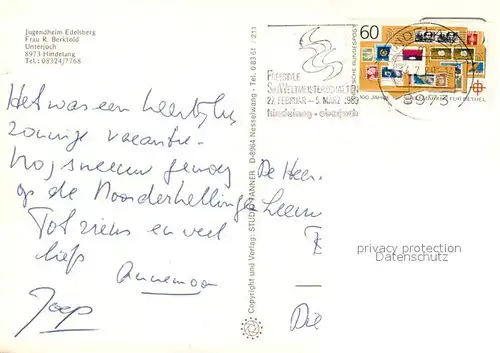 Jugendheim Edelsberg
Frau R. Berktold
Unterjoch
8973 Hindelang
Tel.: 08324/7768
Het was een heerlijke
zonnige vacantie.
Nog sneeuw genoeg
op de Noorderhellingen
Tot ziens en veel
liefs
Annemoon
Joep
Copyright und Verlag: STUDIO TANNER D-8964 Nesselwang - Tel. 0 83 61 - 211
FREESTYLE
SKIWELTMEISTERSCHAFTEN
27. FEBRUAR - 5. MÄRZ 1989
hindelang - oberjoch
60
DEUTSCHE BUNDESPOST
100 JAHRE BRIEFMARKEN FÜR BETHEL
8973
De Heer
Die
privacy protection
Datenschutz